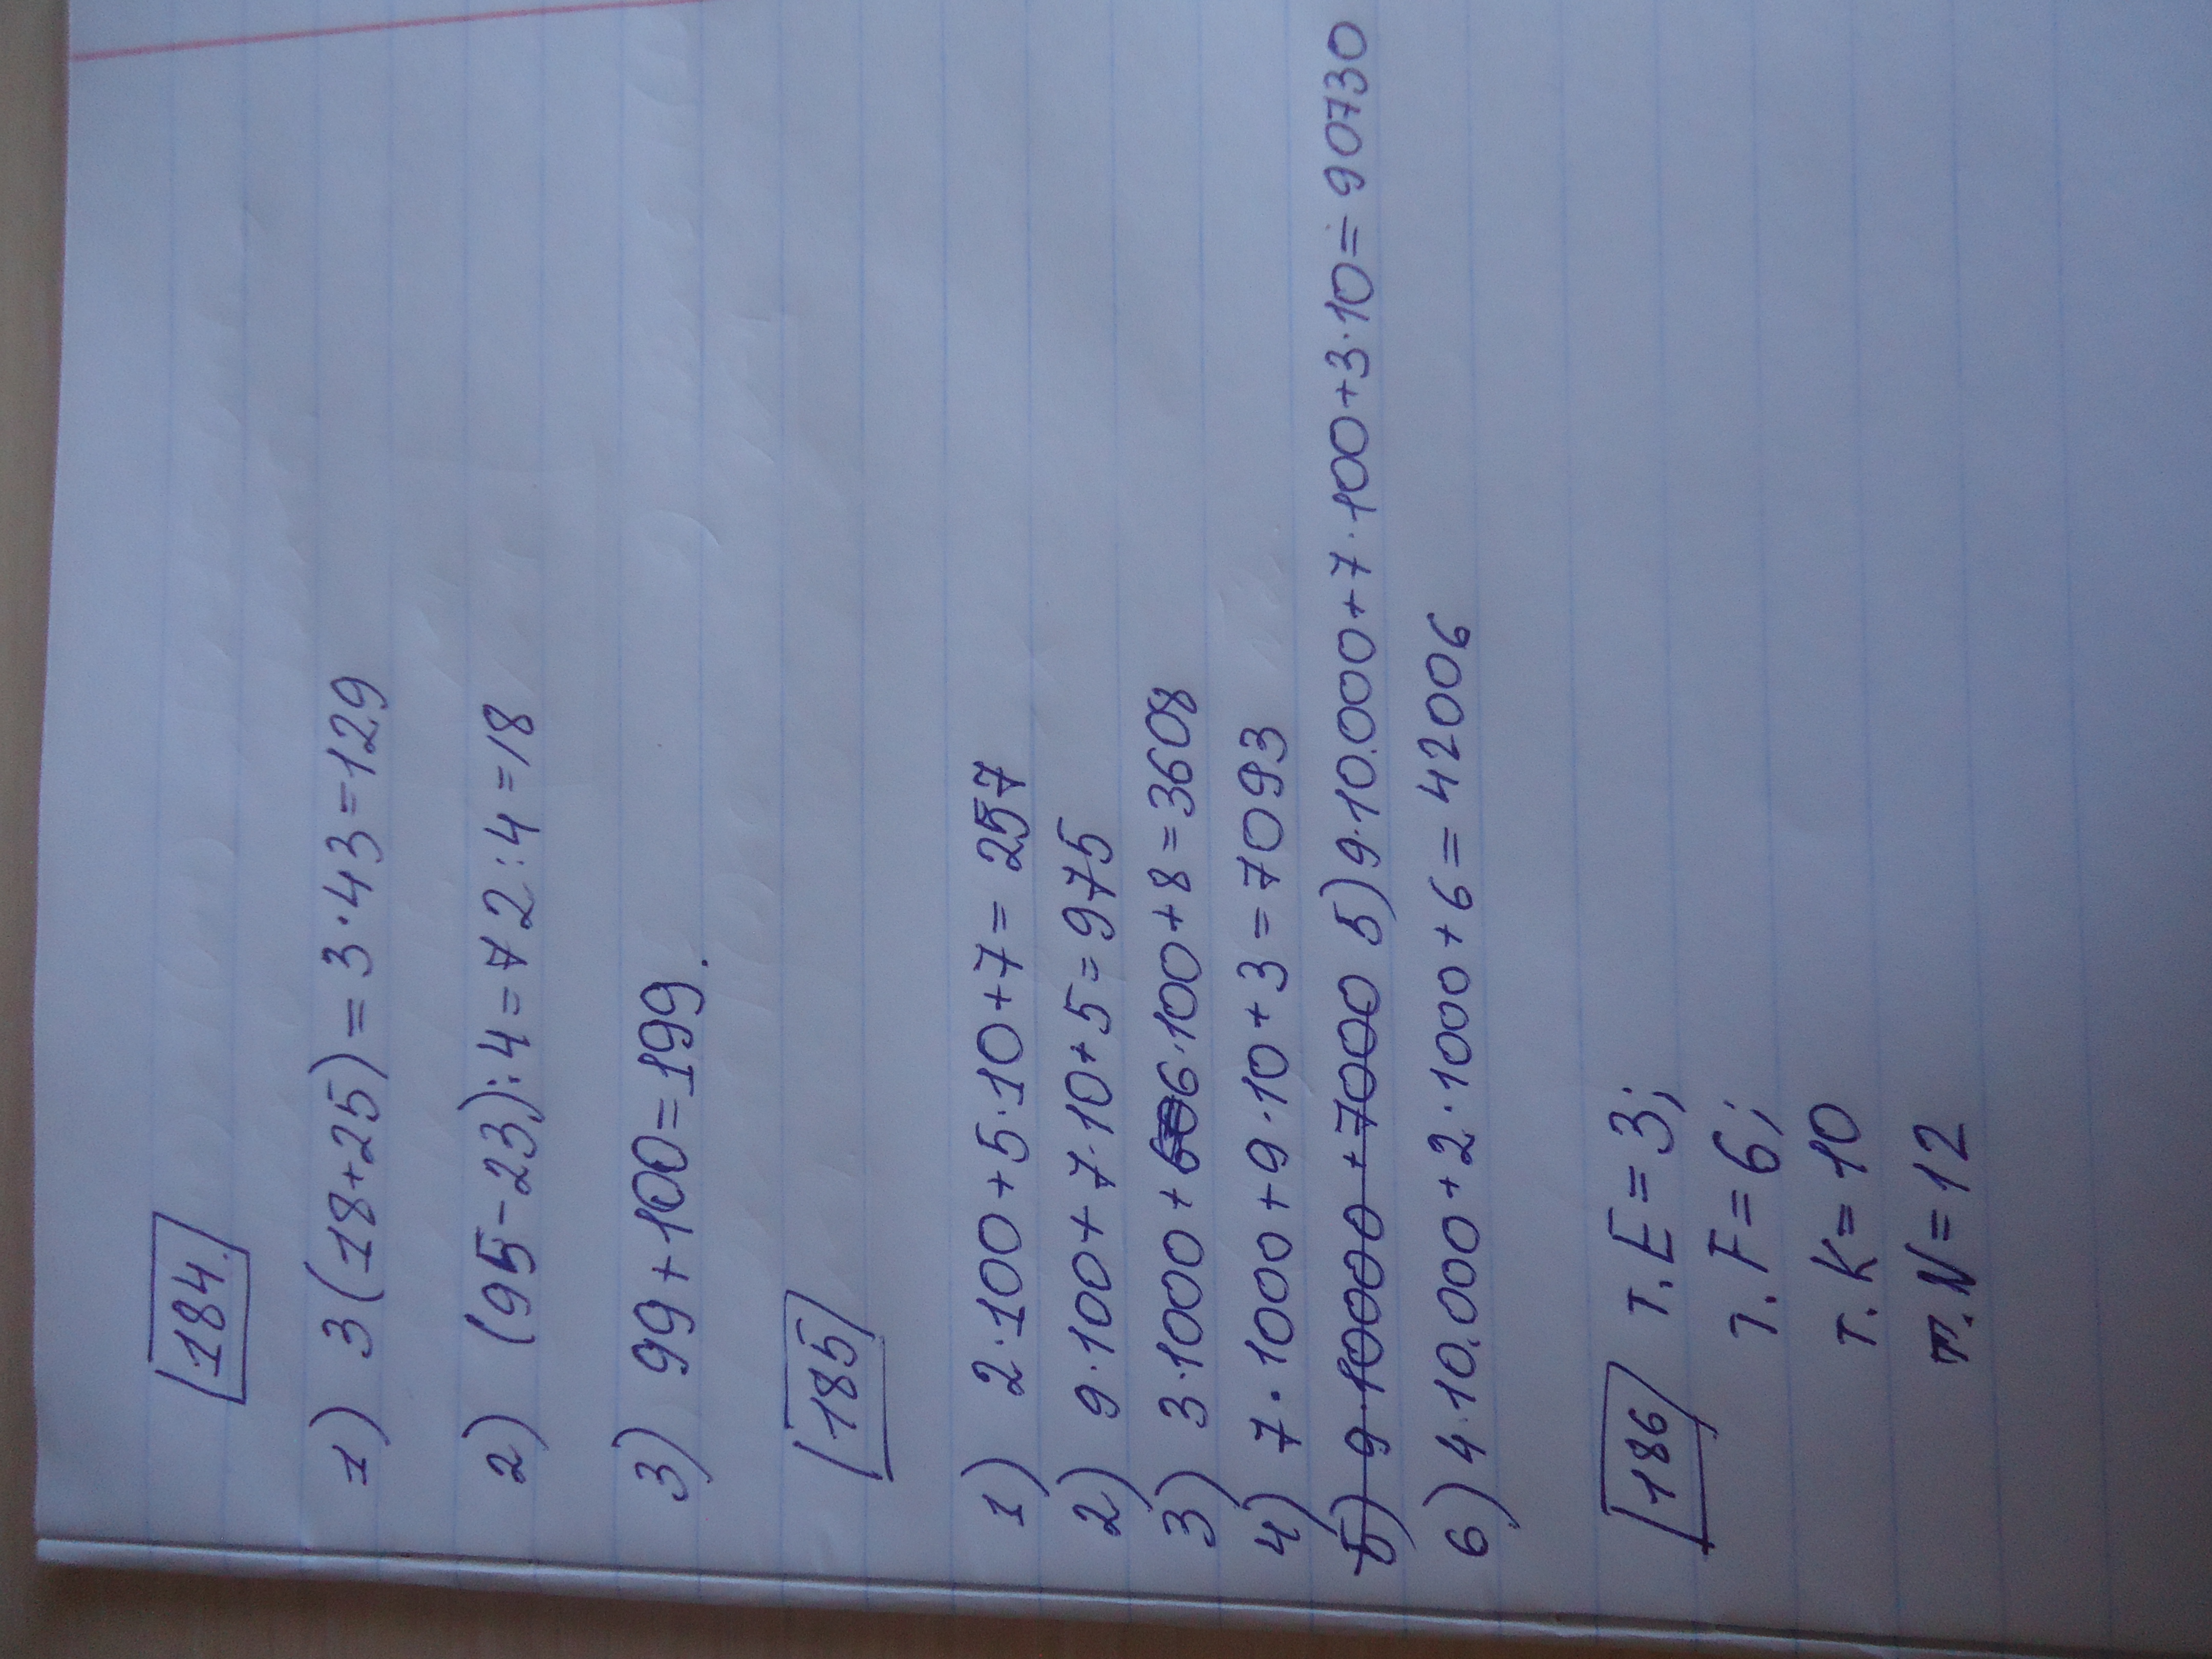 184.
1) 3(18+25)=3·43=129
2) (95-23):4=72:4=18
3) 99+100=199.
185
1) 2·100+5·10+7=257
2) 9·100+7·10+5=975
3) 3·1000+6·100+8=3608
4) 7·1000+9·10+3=7093
5) 9·10000+7000 5) 9·10.000+7·100+3·10=90730
6) 4·10.000+2·1000+6=42006
186 т.E=3;
т.F=6;
т.K=10
т.N=12